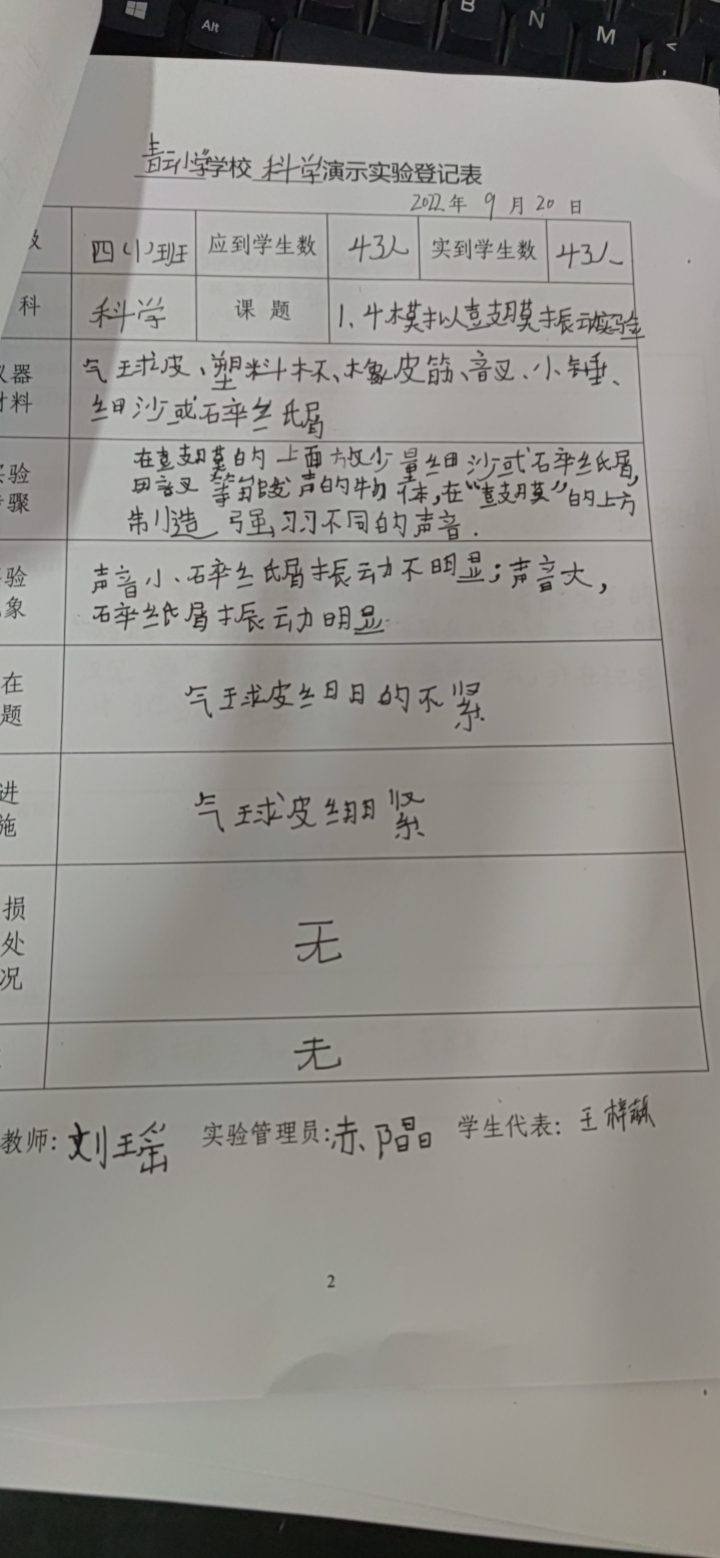 Alt
B
N
M
<
青云小学学校 科学演示实验登记表
2022年 9月20日
数 四(1)班 应到学生数 43人 实到学生数 43人
科 科学 课题 1.4模拟鼓膜振动实验
仪器 气球皮、塑料杯、橡皮筋、音叉、小锤、
材料 细沙或碎纸屑
实验 在鼓膜的上面放少量细沙或碎纸屑,
步骤 用音叉等能发声的物体,在“鼓膜”的上方
制造强弱不同的声音.
验 声音小、碎纸屑振动不明显;声音大,
象 碎纸屑振动明显.
在 气球皮绷的不紧
题
进 气球皮绷紧
施
损
处 无
况
无
教师: 刘瑶 实验管理员: 赤阳晶 学生代表: 王梓
2